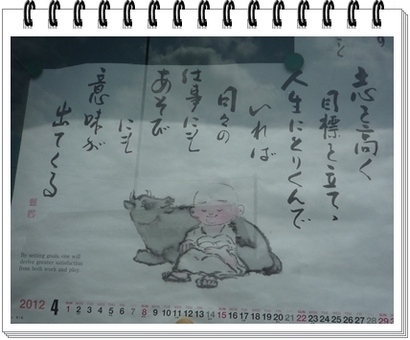 志を高く
目標を立て、
人生にとりくんで
いれば
日々の
仕事にも
あそび
にも
意味が
出てくる
By setting goals, one will
derive greater satisfaction
from both work and play.
2012 4 1 2 3 4 5 6 7 8 9 10 11 12 13 14 15 16 17 18 19 20 21 22 23 24 25 26 27 28 29